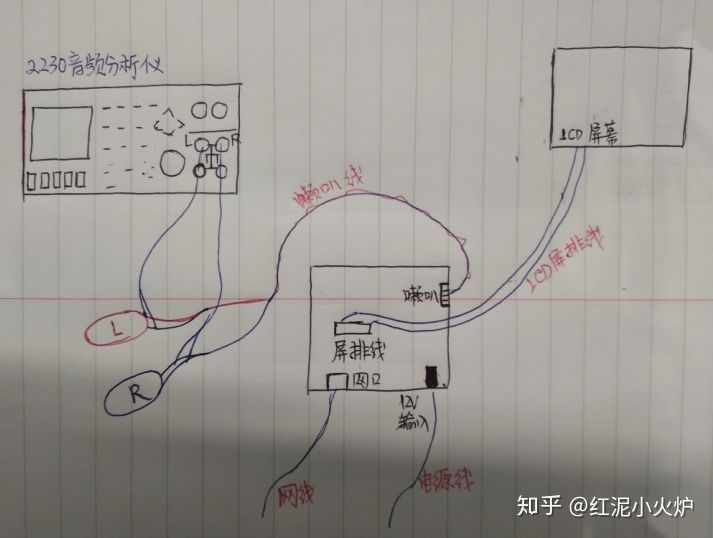 2230音频分析仪
L
R
LCD屏幕
喇叭线
LCD屏排线
喇叭
屏排线
网口
12V
输入
L
R
网线
电源线
知乎 @红泥小火炉